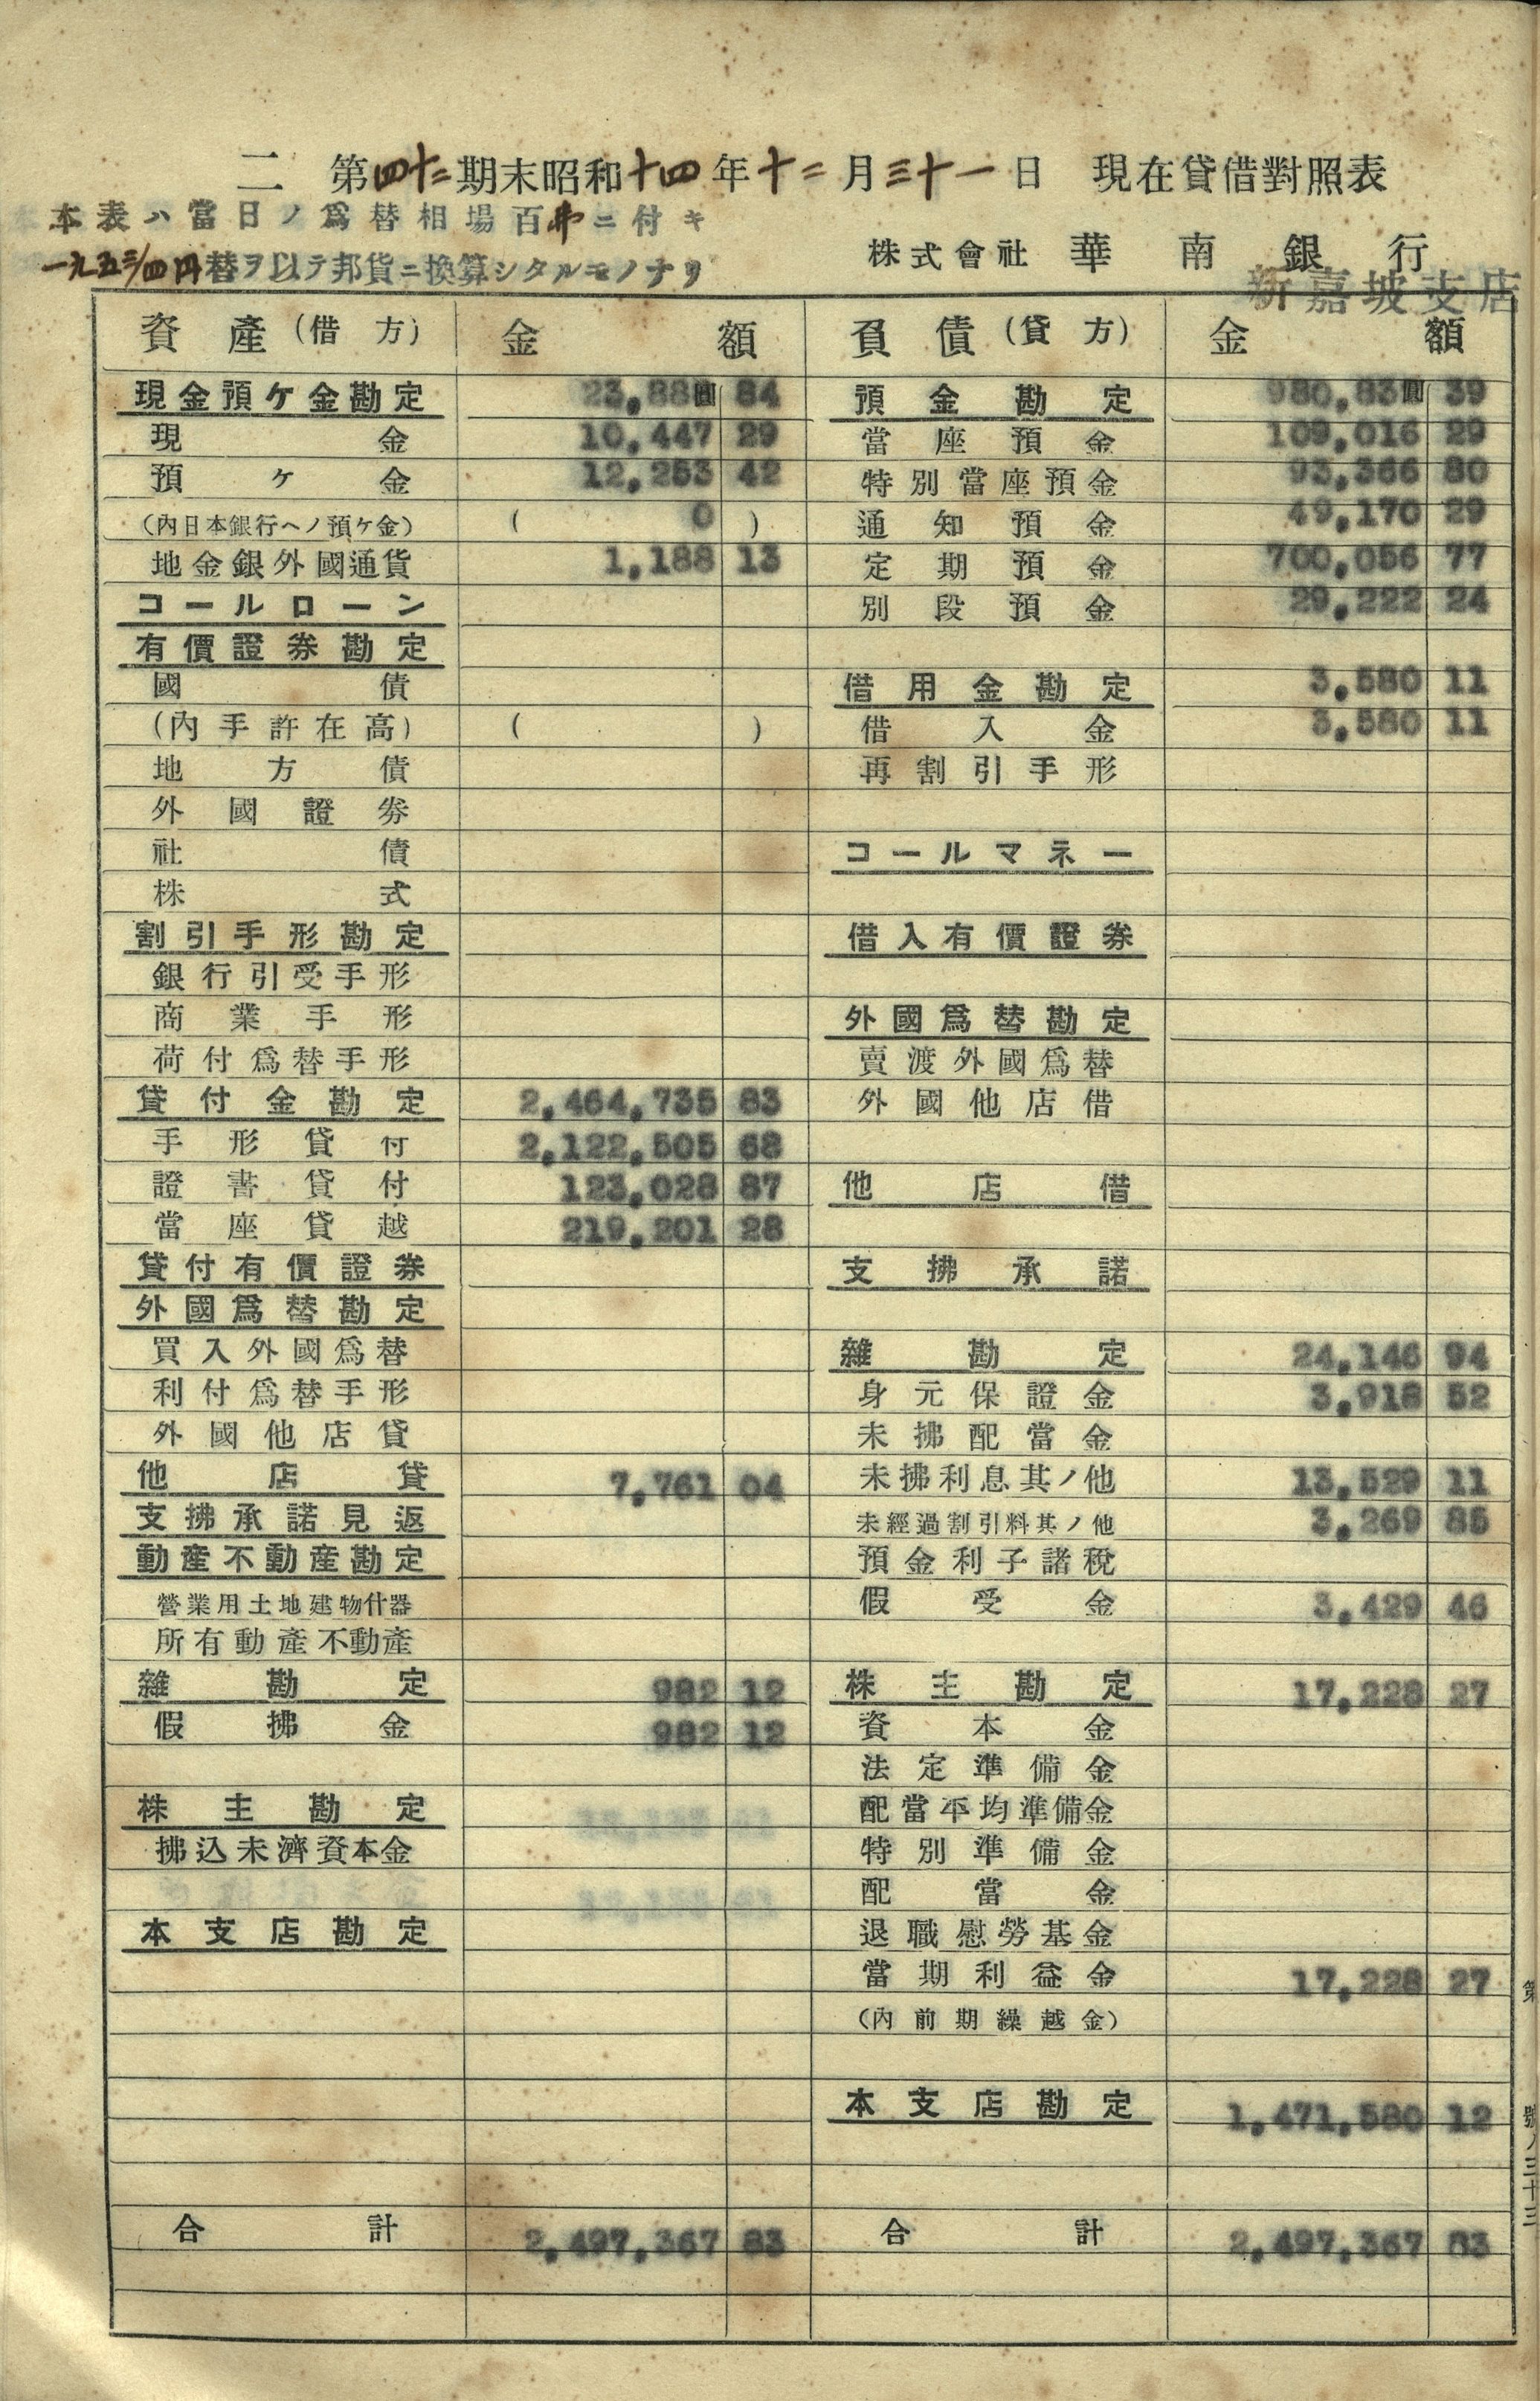 二 第四十二期末昭和十四年十二月三十一日 現在貸借對照表
本表ハ當日ノ爲替相場百弗ニ付キ
一九五三/四円替ヲ以テ邦貨ニ換算シタルモノナリ
株式會社 華南銀行
新嘉坡支店
資產(借方) 金額 負債(貸方) 金額
現金預ケ金勘定 23,888圓84 預金勘定 980,832圓39
現金 10,447 29 當座預金 109,016 29
預ケ金 12,253 42 特別當座預金 93,366 80
(內日本銀行ヘノ預ケ金) ( 0 ) 通知預金 49,170 29
地金銀外國通貨 1,188 13 定期預金 700,056 77
コールローン 別段預金 29,222 24
有價證券勘定
國債 借用金勘定 3,580 11
(內手許在高) ( ) 借入金 3,580 11
地方債 再割引手形
外國證券
社債 コールマネー
株式
割引手形勘定 借入有價證券
銀行引受手形
商業手形 外國爲替勘定
荷付爲替手形 賣渡外國爲替
貸付金勘定 2,464,735 83 外國他店借
手形貸付 2,122,505 68
證書貸付 123,028 87 他店借
當座貸越 219,201 28
貸付有價證券 支拂承諾
外國爲替勘定
買入外國爲替 雜勘定 24,146 94
利付爲替手形 身元保證金 3,918 52
外國他店貸 未拂配當金
他店貸 7,761 04 未拂利息其ノ他 13,529 11
支拂承諾見返 未經過割引料其ノ他 3,269 85
動產不動產勘定 預金利子諸稅
營業用土地建物什器 假受金 3,429 46
所有動產不動產
雜勘定 982 12 株主勘定 17,228 27
假拂金 982 12 資本金
法定準備金
株主勘定 配當平均準備金
拂込未濟資本金 特別準備金
配當金
本支店勘定 退職慰勞基金
當期利益金 17,228 27
(內前期繰越金)
本支店勘定 1,471,580 12
合計 2,497,367 83 合計 2,497,367 83